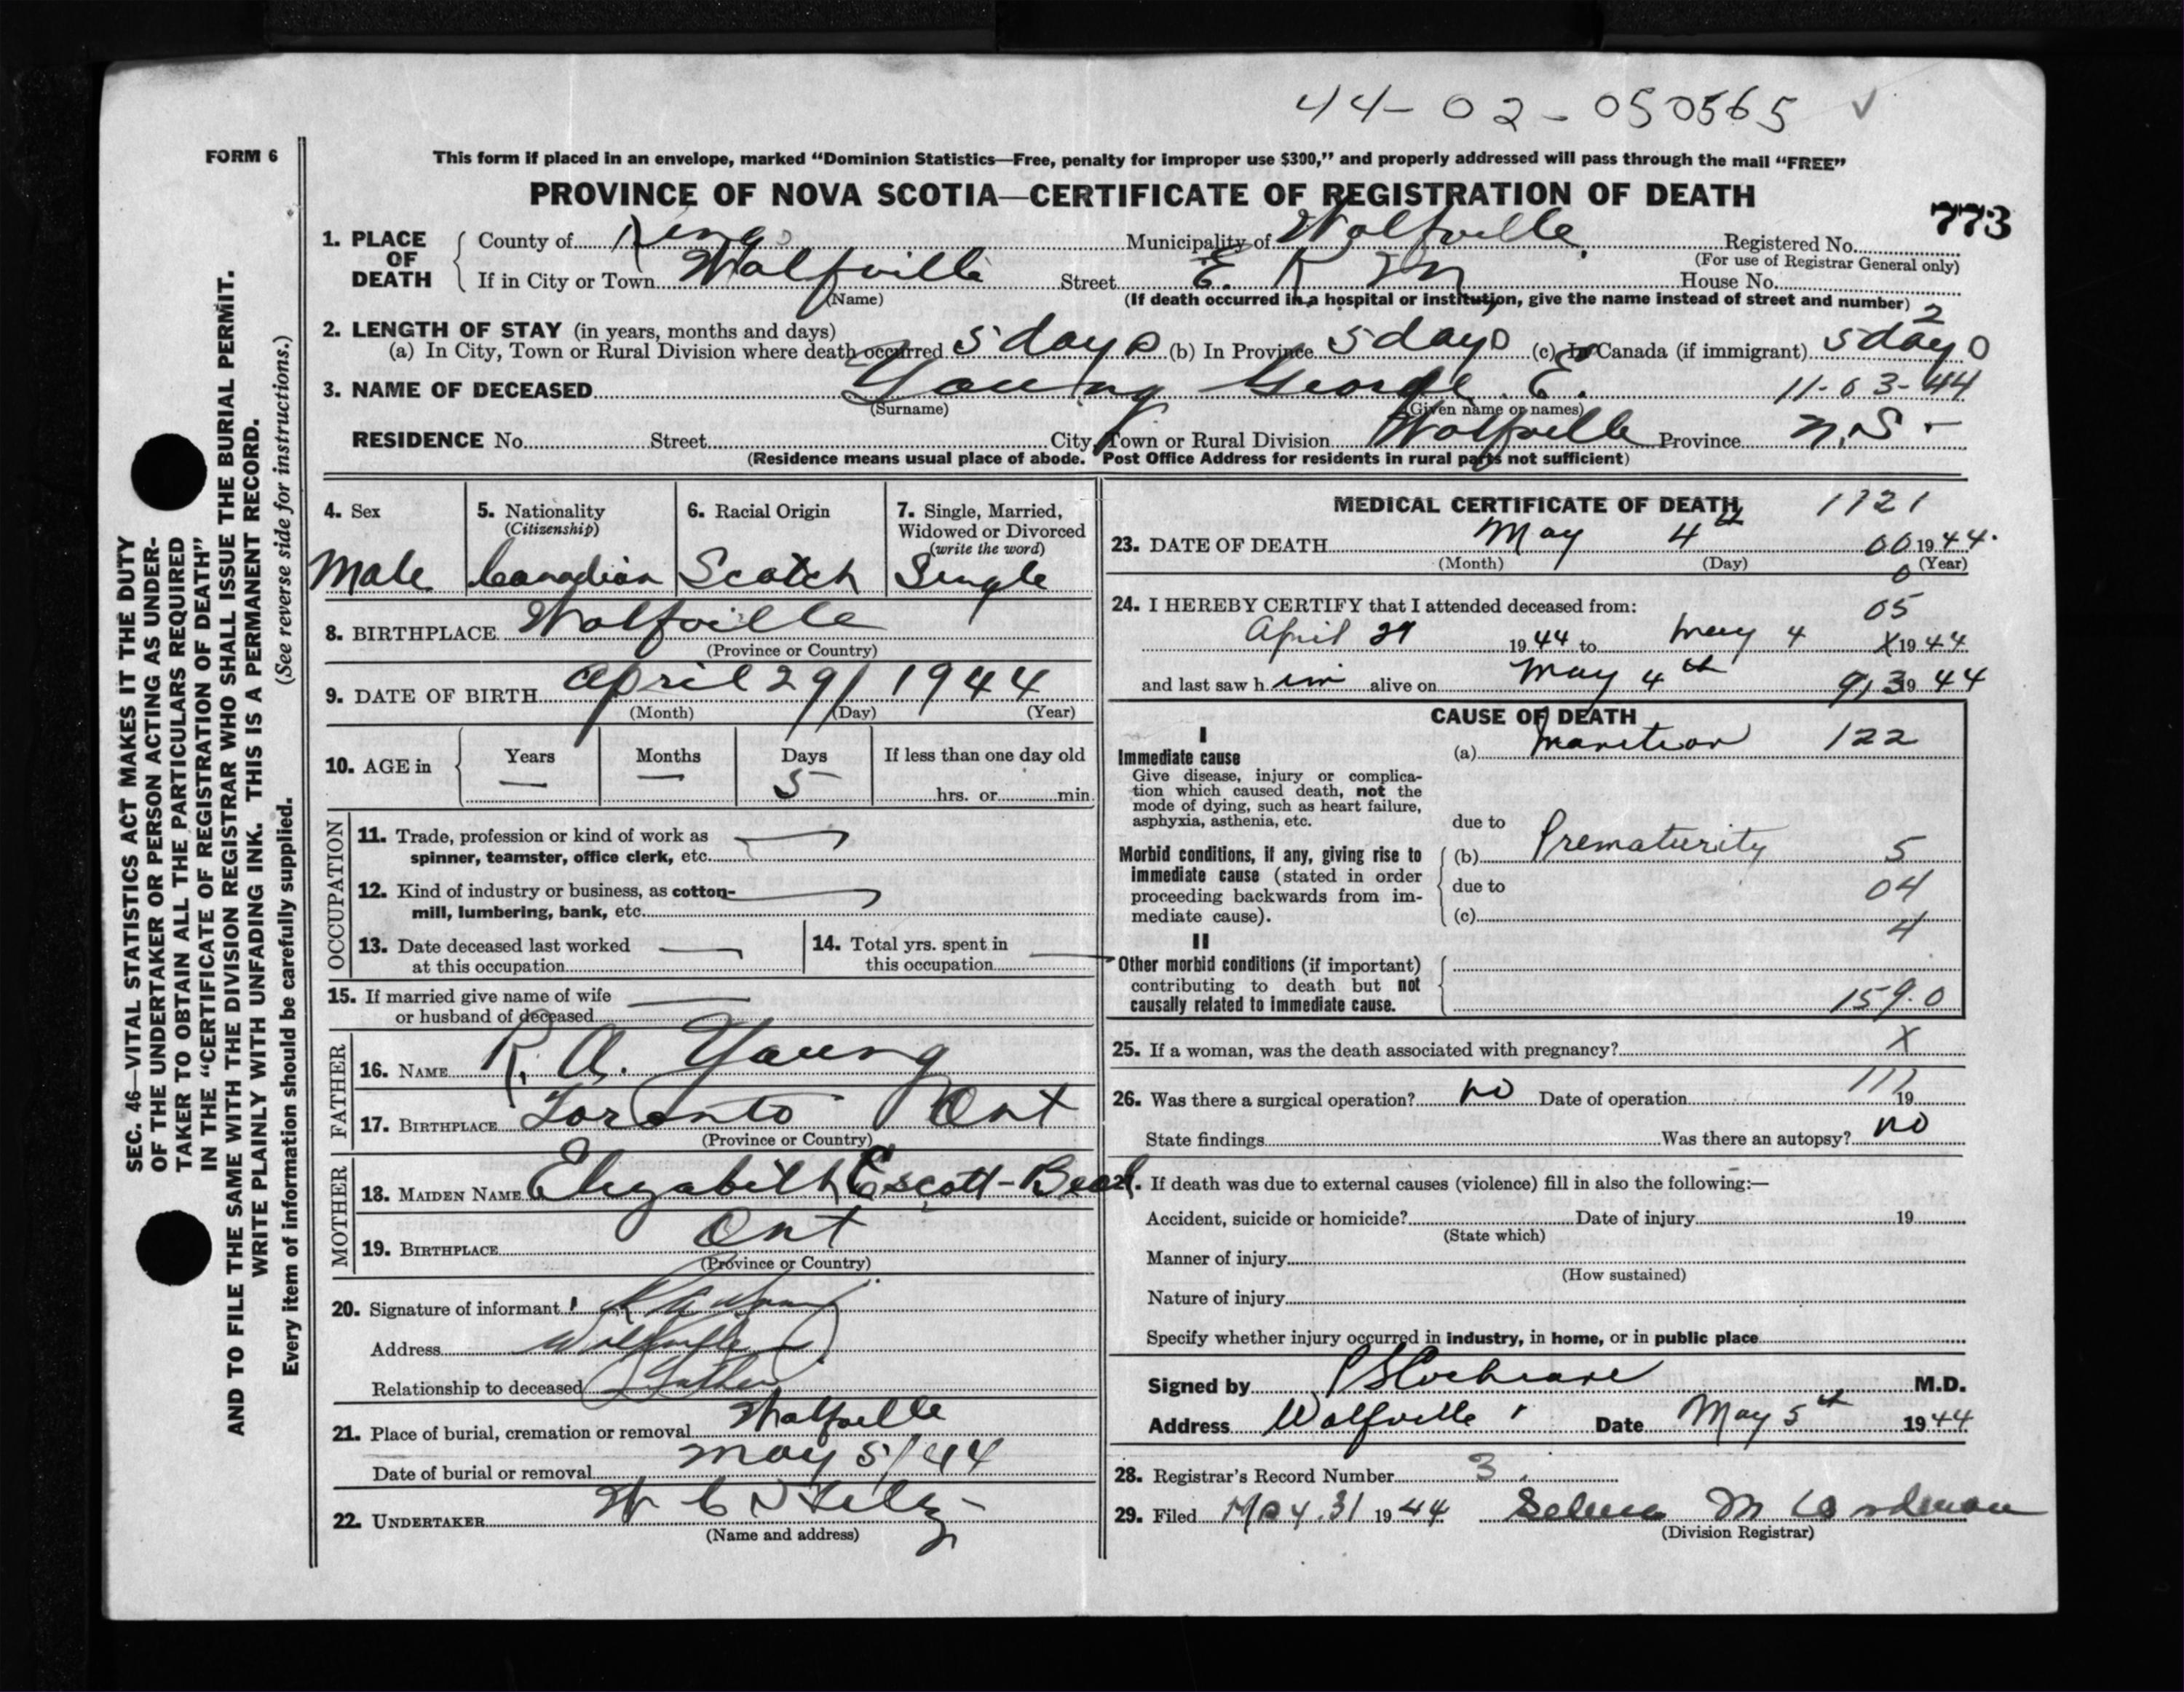 44-02-050565 ✓
FORM 6
This form if placed in an envelope, marked “Dominion Statistics—Free, penalty for improper use $300,” and properly addressed will pass through the mail “FREE”
PROVINCE OF NOVA SCOTIA—CERTIFICATE OF REGISTRATION OF DEATH
773
1. PLACE OF DEATH
County of Kings Municipality of Wolfville Registered No.
(For use of Registrar General only)
If in City or Town Wolfville Street E. K M House No.
(Name) (If death occurred in a hospital or institution, give the name instead of street and number) 2
2. LENGTH OF STAY (in years, months and days)
(a) In City, Town or Rural Division where death occurred 5 days (b) In Province 5 days (c) In Canada (if immigrant) 5 days
3. NAME OF DECEASED Young George E. 11-03-44
(Surname) (Given name or names)
RESIDENCE No. Street City, Town or Rural Division Wolfville Province N.S.
(Residence means usual place of abode. Post Office Address for residents in rural parts not sufficient)
4. Sex
Male
5. Nationality
(Citizenship)
Canadian
6. Racial Origin
Scotch
7. Single, Married,
Widowed or Divorced
(write the word)
Single
8. BIRTHPLACE Wolfville
(Province or Country)
9. DATE OF BIRTH April 29/ 1944
(Month) (Day) (Year)
10. AGE in
Years Months Days If less than one day old
— — 5 hrs. or min.
OCCUPATION
11. Trade, profession or kind of work as —
spinner, teamster, office clerk, etc.
12. Kind of industry or business, as cotton- —
mill, lumbering, bank, etc.
13. Date deceased last worked —
at this occupation
14. Total yrs. spent in
this occupation —
15. If married give name of wife —
or husband of deceased
FATHER
16. NAME R. A. Young
17. BIRTHPLACE Toronto Ont
(Province or Country)
MOTHER
18. MAIDEN NAME Elizabeth Escott-Beal
19. BIRTHPLACE Ont
(Province or Country)
20. Signature of informant R A Young
Address Wolfville
Relationship to deceased Father
21. Place of burial, cremation or removal Wolfville
Date of burial or removal May 5/44
22. UNDERTAKER W C
(Name and address)
MEDICAL CERTIFICATE OF DEATH 1121
23. DATE OF DEATH May 4th 00 1944.
(Month) (Day) (Year)
0
24. I HEREBY CERTIFY that I attended deceased from: 05
April 29 1944 to May 4 X 1944
and last saw him alive on May 4th 9,3 1944
CAUSE OF DEATH
I
Immediate cause
Give disease, injury or complica-
tion which caused death, not the
mode of dying, such as heart failure,
asphyxia, asthenia, etc.
(a) 122
due to
Morbid conditions, if any, giving rise to
immediate cause (stated in order
proceeding backwards from im-
mediate cause).
(b) Prematurity 5
due to 04
(c) 4
II
Other morbid conditions (if important)
contributing to death but not
causally related to immediate cause.
159.0
25. If a woman, was the death associated with pregnancy? X
26. Was there a surgical operation? no Date of operation 19
State findings Was there an autopsy? no
27. If death was due to external causes (violence) fill in also the following:—
Accident, suicide or homicide? Date of injury 19
(State which)
Manner of injury
(How sustained)
Nature of injury
Specify whether injury occurred in industry, in home, or in public place
Signed by Cochrane M.D.
Address Wolfville Date May 5th 1944
28. Registrar's Record Number 3.
29. Filed May 31 1944 M
(Division Registrar)
SEC. 46—VITAL STATISTICS ACT MAKES IT THE DUTY
OF THE UNDERTAKER OR PERSON ACTING AS UNDER-
TAKER TO OBTAIN ALL THE PARTICULARS REQUIRED
IN THE “CERTIFICATE OF REGISTRATION OF DEATH”
AND TO FILE THE SAME WITH THE DIVISION REGISTRAR WHO SHALL ISSUE THE BURIAL PERMIT.
WRITE PLAINLY WITH UNFADING INK. THIS IS A PERMANENT RECORD.
(See reverse side for instructions.)
Every item of information should be carefully supplied.